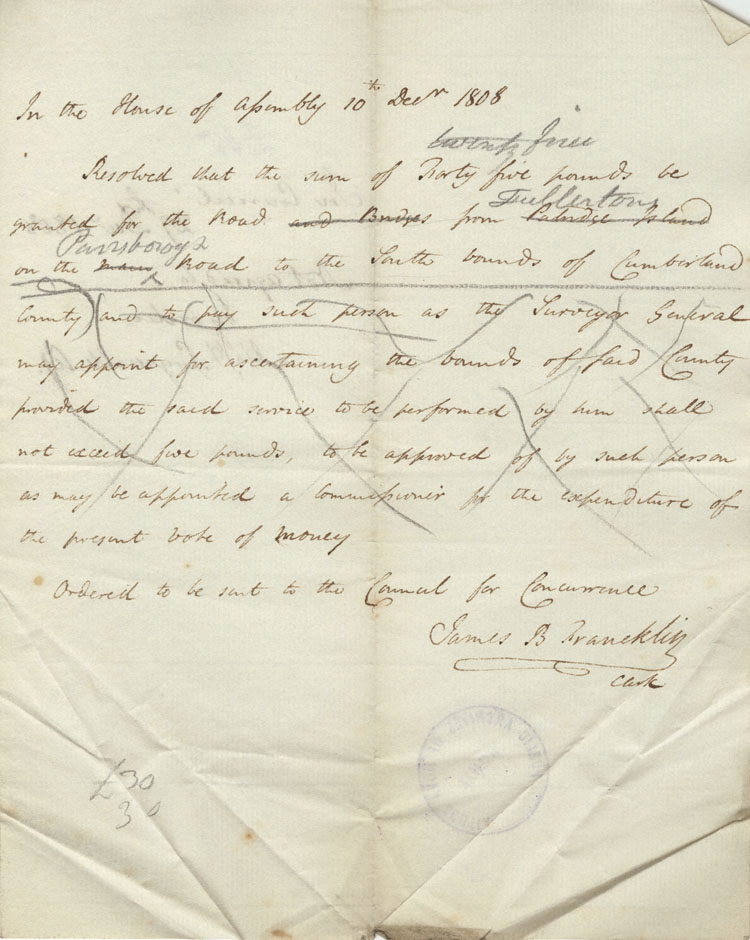 In the House of Assembly 10th Decr 1808
twenty five
Resolved that the sum of Forty five pounds be
Fullertons
granted for the Road and Bridges from Patridge Island
Parrsborough
on the main Road to the South bounds of Cumberland
County (and to (pay such person as the Surveyor General
may appoint for ascertaining the bounds of said County
provided the said service to be performed by him shall
not exceed five pounds, to be approved of by such person
as may be appointed a Commissioner for the expenditure of
the present Vote of Money
Ordered to be sent to the Council for Concurrence
James B Francklin
Clerk
£30
30